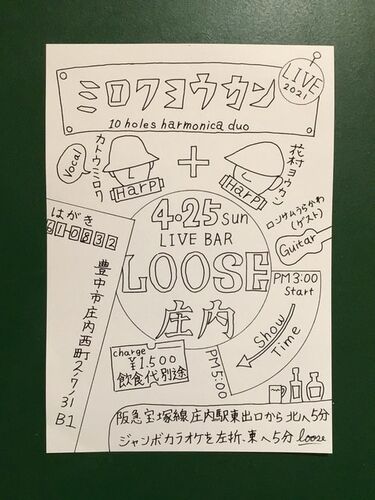 LIVE
2021
ミロクヨウカン
10 holes harmonica duo
カトウミロク
Vocal
HarP
+
花村ヨウカン
HarP
4・25 sun
LIVE BAR
LOOSE
庄内
ロンサムうらかわ
(ゲスト)
Guitar
はがき
561-0832
豊中市庄内西町2/7/31
B1
PM3:00
Start
Show
Time
PM5:00
charge
¥1.500
飲食代別途
阪急宝塚線庄内駅東出口から北へ5分
ジャンボカラオケを左折、東へ5分 loose